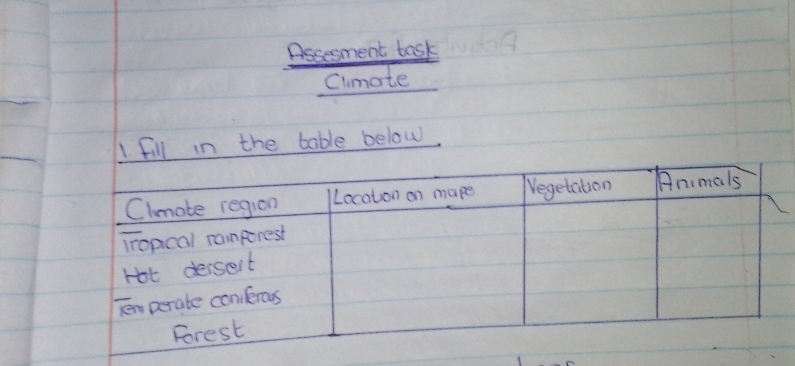 Assesment task
Climate
1 Fill in the table below.
Climate region Location on mape Vegetation Animals
Tropical rainforest
Hot dersert
Temperate coniferous
Forest